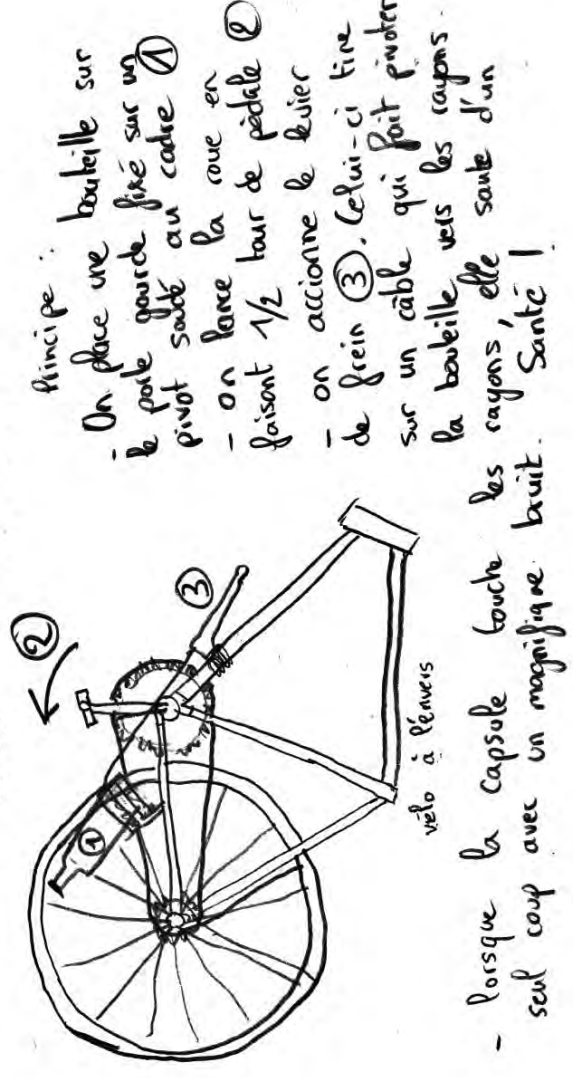 Principe :
- On place une bouteille sur
le porte gourde fixé sur un
pivot soudé au cadre ①
- on lance la roue en
faisant 1/2 tour de pédale ②
- on actionne le levier
de frein ③. Celui-ci tire
sur un câble qui fait pivoter
la bouteille vers les rayons.
- lorsque la capsule touche les rayons, elle saute d'un
seul coup avec un magnifique bruit. Santé !
②
③
①
vélo à l'envers